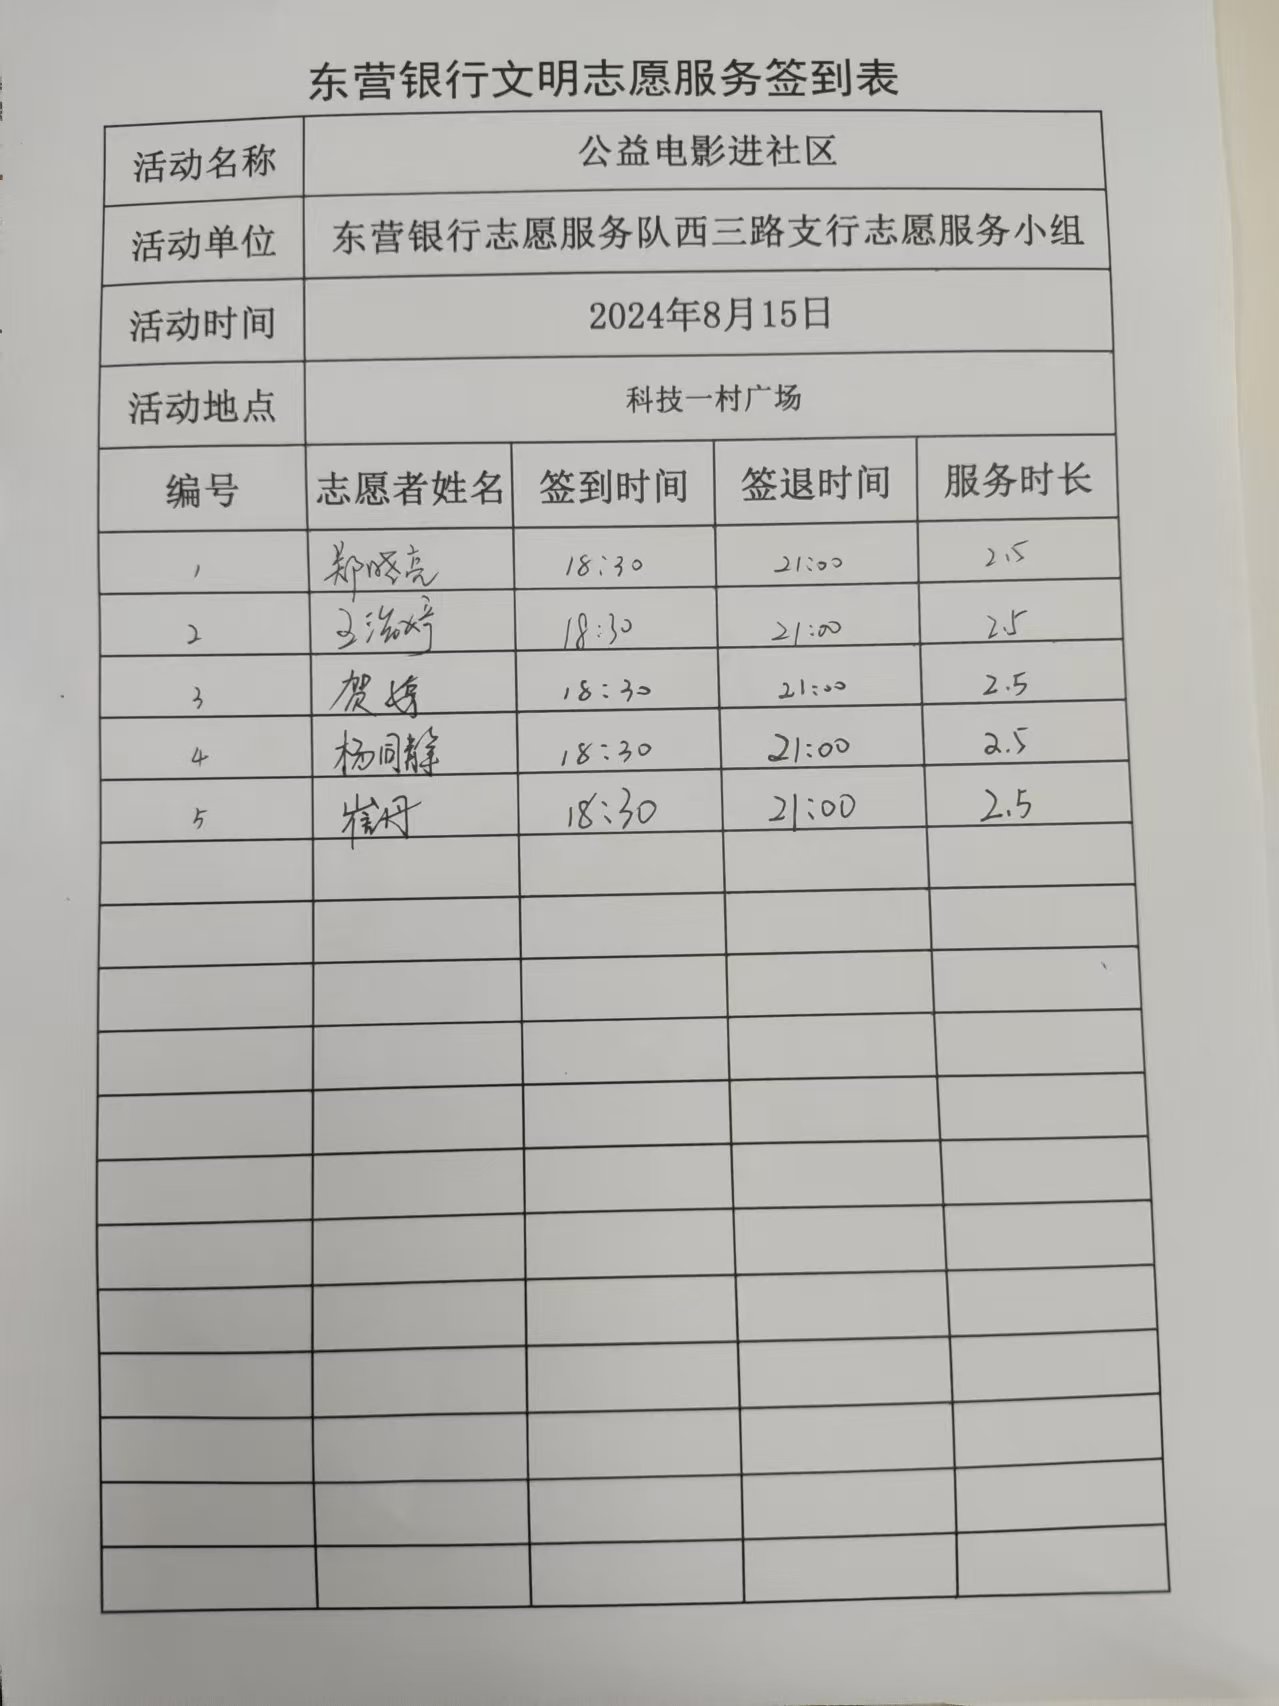 东营银行文明志愿服务签到表
活动名称 公益电影进社区
活动单位 东营银行志愿服务队西三路支行志愿服务小组
活动时间 2024年8月15日
活动地点 科技一村广场
编号 志愿者姓名 签到时间 签退时间 服务时长
1 郑晓亮 18:30 21:00 2.5
2 王浩婷 18:30 21:00 2.5
3 贺婷 18:30 21:00 2.5
4 杨同静 18:30 21:00 2.5
5 崔丹 18:30 21:00 2.5